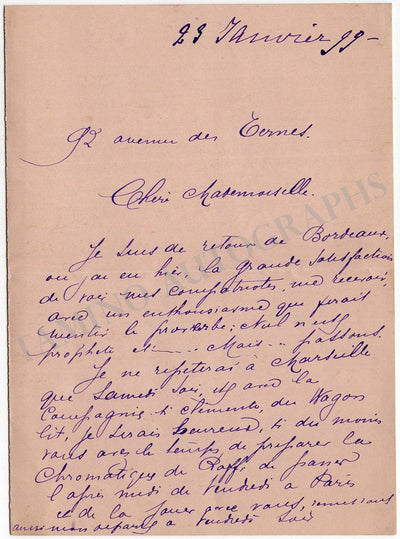 23 Janvier 99-
92 avenue des Ternes.
Chère Mademoiselle.
Je suis de retour de Bordeaux,
où j'ai eu hier la grande satisfaction
de voir mes compatriotes, me recevoir,
avec un enthousiasme que ferait
mentir le proverbe; Nul n'est
prophète et ..... Mais.. passons.
Je ne repeterai à Marseille
que Samedi soir, et avec la
Compagnie si clémente, du Wagon
lit, je serais heureux, si du moins
vous avez le temps, de preparer la
Chromatique de Raff, de passer
l'après midi de Vendredi à Paris
et de la jouer avec vous,
à Vendredi Soir
LA MIND AUTOGRAPHS